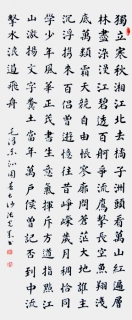 獨立寒秋湘江北去橘子洲頭看萬山紅遍層
林盡染漫江碧透百舸爭流鷹擊長空魚翔淺
底萬類霜天競自由悵寥廓問蒼茫大地誰主
沉浮攜來百侶曾遊憶往昔崢嶸歲月稠恰同
學少年風華正茂書生意氣揮斥方遒指點江
山激揚文字糞土當年萬戶侯曾記否到中流
擊水浪遏飛舟
毛澤東沁園春長沙